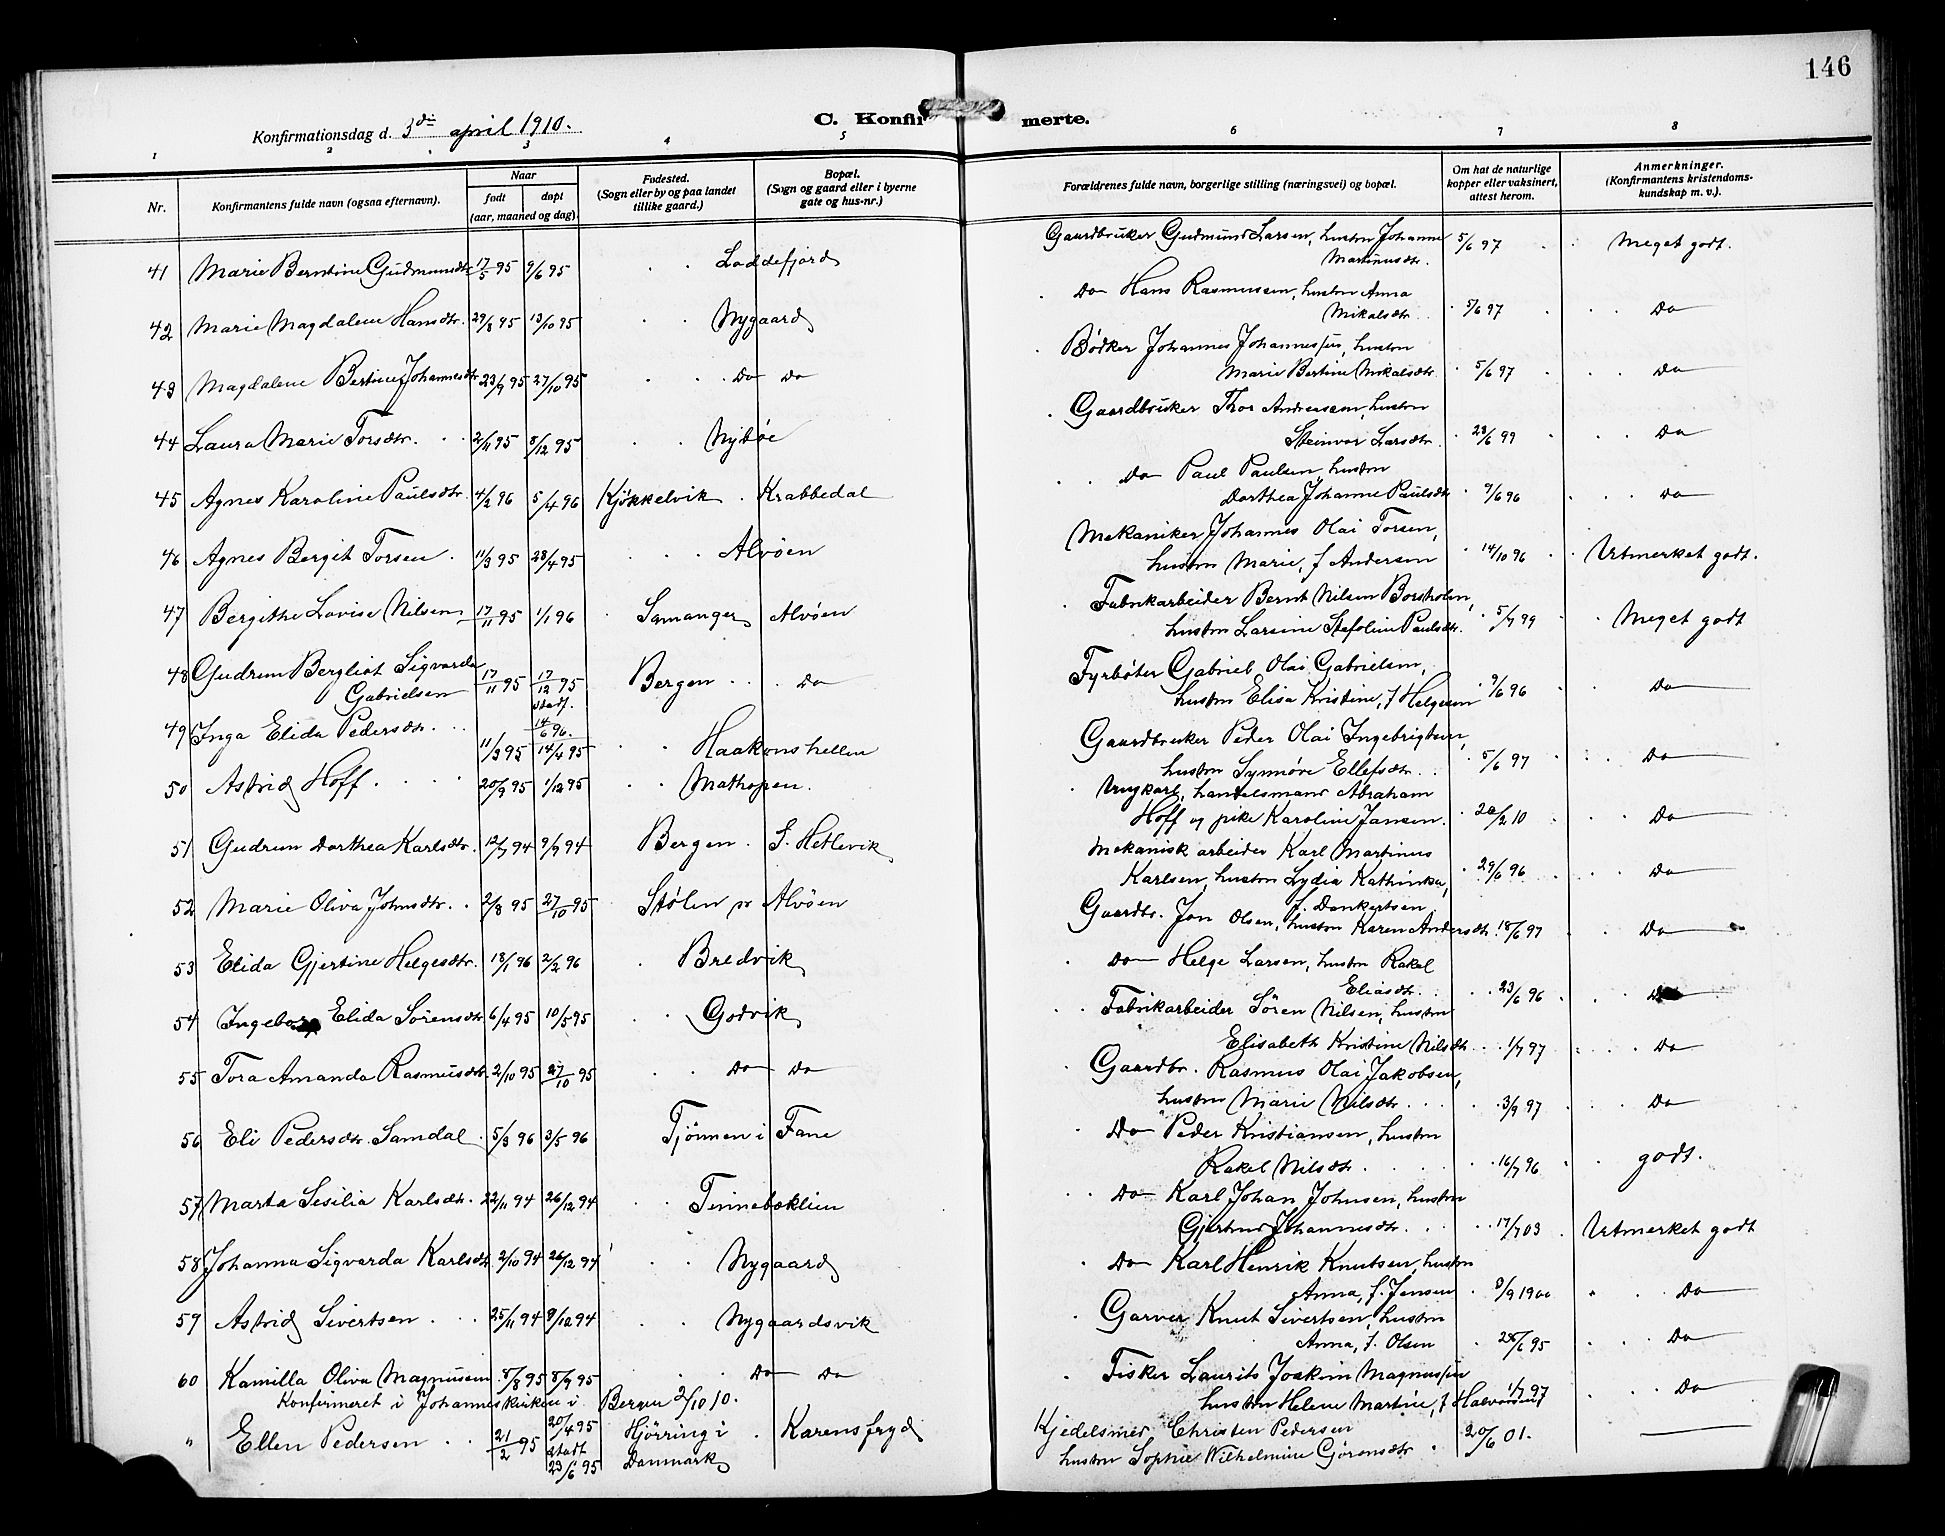 146
Konfirmationsdag d. 3die april 1910.
C. Konfirmerte.
1 2 3 4 5 6 7 8
Nr.
Konfirmantens fulde navn (ogsaa efternavn).
Naar
født
døpt
(aar, maaned og dag)
Fødested.
(Sogn eller by og paa landet tillike gaard.)
Bopæl.
(Sogn og gaard eller i byerne gate og hus-nr.)
Forældrenes fulde navn, borgerlige stilling (næringsvei) og bopæl.
Om hat de naturlige kopper eller vaksinert, attest herom.
Anmerkninger.
(Konfirmantens kristendomskundskap m. v.).
41 Marie Berntine Gudmundsdtr 17/5 95 9/6 95 Loddefjord Gaardbruker Gudmund Larsen, hustru Johanne Martinusdtr. 5/6 97 Meget godt.
42 Marie Magdalene Hansdtr. 29/8 95 13/10 95 Nygaard Do Hans Rasmussen, hustru Anna Mikalsdtr. 5/6 97 Do
43 Magdalene Bertine Johannesdtr 23/9 95 27/10 95 Do Do Bødker Johannes Johannessen, hustru Marie Bertine Mikalsdtr. 5/6 97 Do
44 Laura Marie Torsdtr. 2/11 95 8/12 95 Nybøe Gaardbruker Thor Andreassen, hustru Steinvor Larsdtr. 28/6 99 Do
45 Agnes Karoline Paulsdtr. 4/2 96 5/4 96 Kjøkkelvik Krabbedal Do Paul Paulsen, hustru Dorthea Johanne Paulsdtr 9/6 96 Do
46 Agnes Bergit Torsen. 11/3 95 28/4 95 Alvøen Mekaniker Johannes Olai Torsen, hustru Marie, f Andersen 14/10 96 Utmerket godt.
47 Bergithe Lovise Nilsen 17/11 95 1/1 96 Samanger Alvøen Fabrikarbeider Bernt Nilsen Borsholm, hustru Larsine Stefoline Paulsdtr. 5/7 99 Meget godt
48 Gudrun Bergliot Sigvarda Gabrielsen 17/11 95 17/12 95 stadf. 14/6 96. Bergen Do Fyrbøter Gabriel Olai Gabrielsen, hustru Elisa Kristine, f Helgesen 9/6 96 Do
49 Inga Elida Pedersdtr. 11/3 95 14/4 95 Haakonshellen Gaardbruker Peder Olai Ingebrigtsen, hustru Synnøve Ellefsdtr. 5/6 97 Do
50 Astrid Hoff. 20/9 95 1/12 95 Mathopen. Ungkarl, handelsmand Abraham Hoff og pike Karoline Jansen. 20/2 10 Do
51 Gudrun Dorthea Karlsdtr. 12/7 94 9/9 94 Bergen. S. Hetlevik Mekanisk arbeider Karl Martinus Karlsen, hustru Lydia Kathinka, f. Dankertsen 29/6 96 Do
52 Marie Oliva Johnsdtr. 2/8 95 27/10 95 Stølen pr Alvøen Gaardbr. Jon Olsen, hustru Karen Andersdtr. 18/6 97 Do
53 Elida Gjertine Helgesdtr. 18/1 96 2/2 96 Bredvik Do Helge Larsen, hustru Rakel Eliasdtr. 23/6 96 Do
54 Ingeborg Elida Sörensdtr 6/4 95 10/5 95 Godvik Fabrikarbeider Sören Nilsen, hustru Elisabeth Kristine Nilsdtr. 1/7 97 Do
55 Tora Amanda Rasmusdtr. 2/10 95 27/10 95 Do Do Gaardbr. Rasmus Olai Jakobsen, hustru Marie Nilsdtr. 3/9 97 Do
56 Eli Pedersdtr. Samdal. 5/3 96 3/5 96 Tjønnen i Fane Do Peder Kristiansen, hustru Rakel Nilsdtr. 16/7 96 godt.
57 Marta Sesilia Karlsdtr. 22/11 94 26/12 94 Tennebæklien Do Karl Johan Johnsen, hustru Gjertrud Johannesdtr. 17/7 03 Utmerket godt
58 Johanna Sigvarda Karlsdtr 2/10 94 26/12 94 Nygaard Do Karl Henrik Knutsen, hustru Anna, f. Jensen 8/9 1900 Do
59 Astrid Sivertsen 25/11 94 8/12 94 Nygaardsvik Garver Knut Sivertsen, hustru Anna, f. Olsen 28/6 95 Do
60 Kamilla Oliva Magnussen 8/8 95 8/9 95 Do Do Fisker Laurits Joakim Magnussen hustru Helene Martine, f Halvorsen 1/7 97 Do
Konfirmeret i Johanneskirken i Bergen 2/10 10.
" Ellen Pedersen 21/2 95 20/4 95 stadf 23/6 95 Hjørring i Danmark Karensfryd Kjedelsmed Christen Pedersen hustru Sophie Wilhelmine Görensdtr 20/6 01.